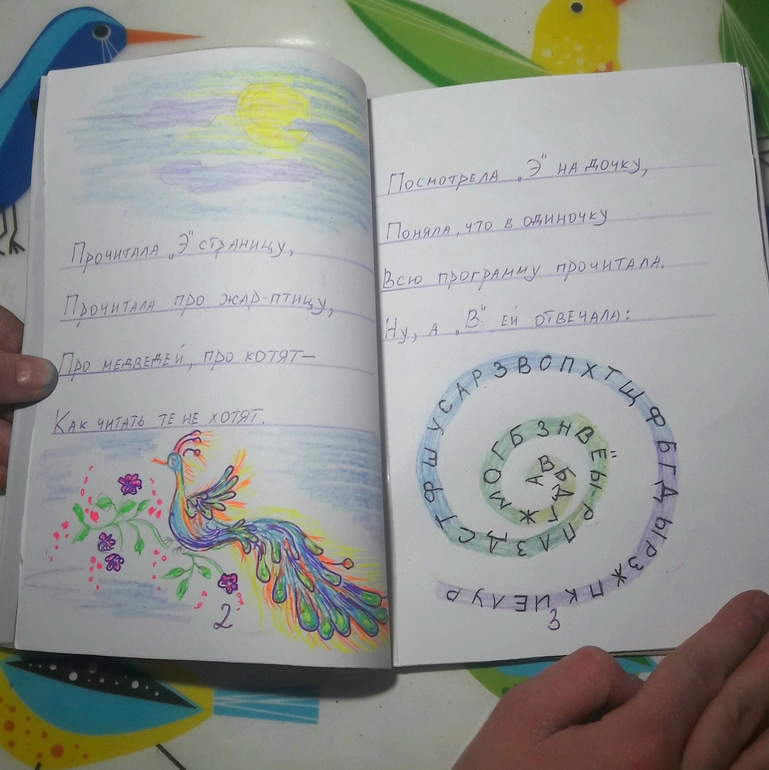 Прочитала „Э" страницу,
Прочитала про жар-птицу,
Про медведей, про котят—
Как читать те не хотят.
2
Посмотрела „Э" на дочку,
Поняла, что в одиночку
Всю программу прочитала.
Ну, а „В" ей отвечала:
3